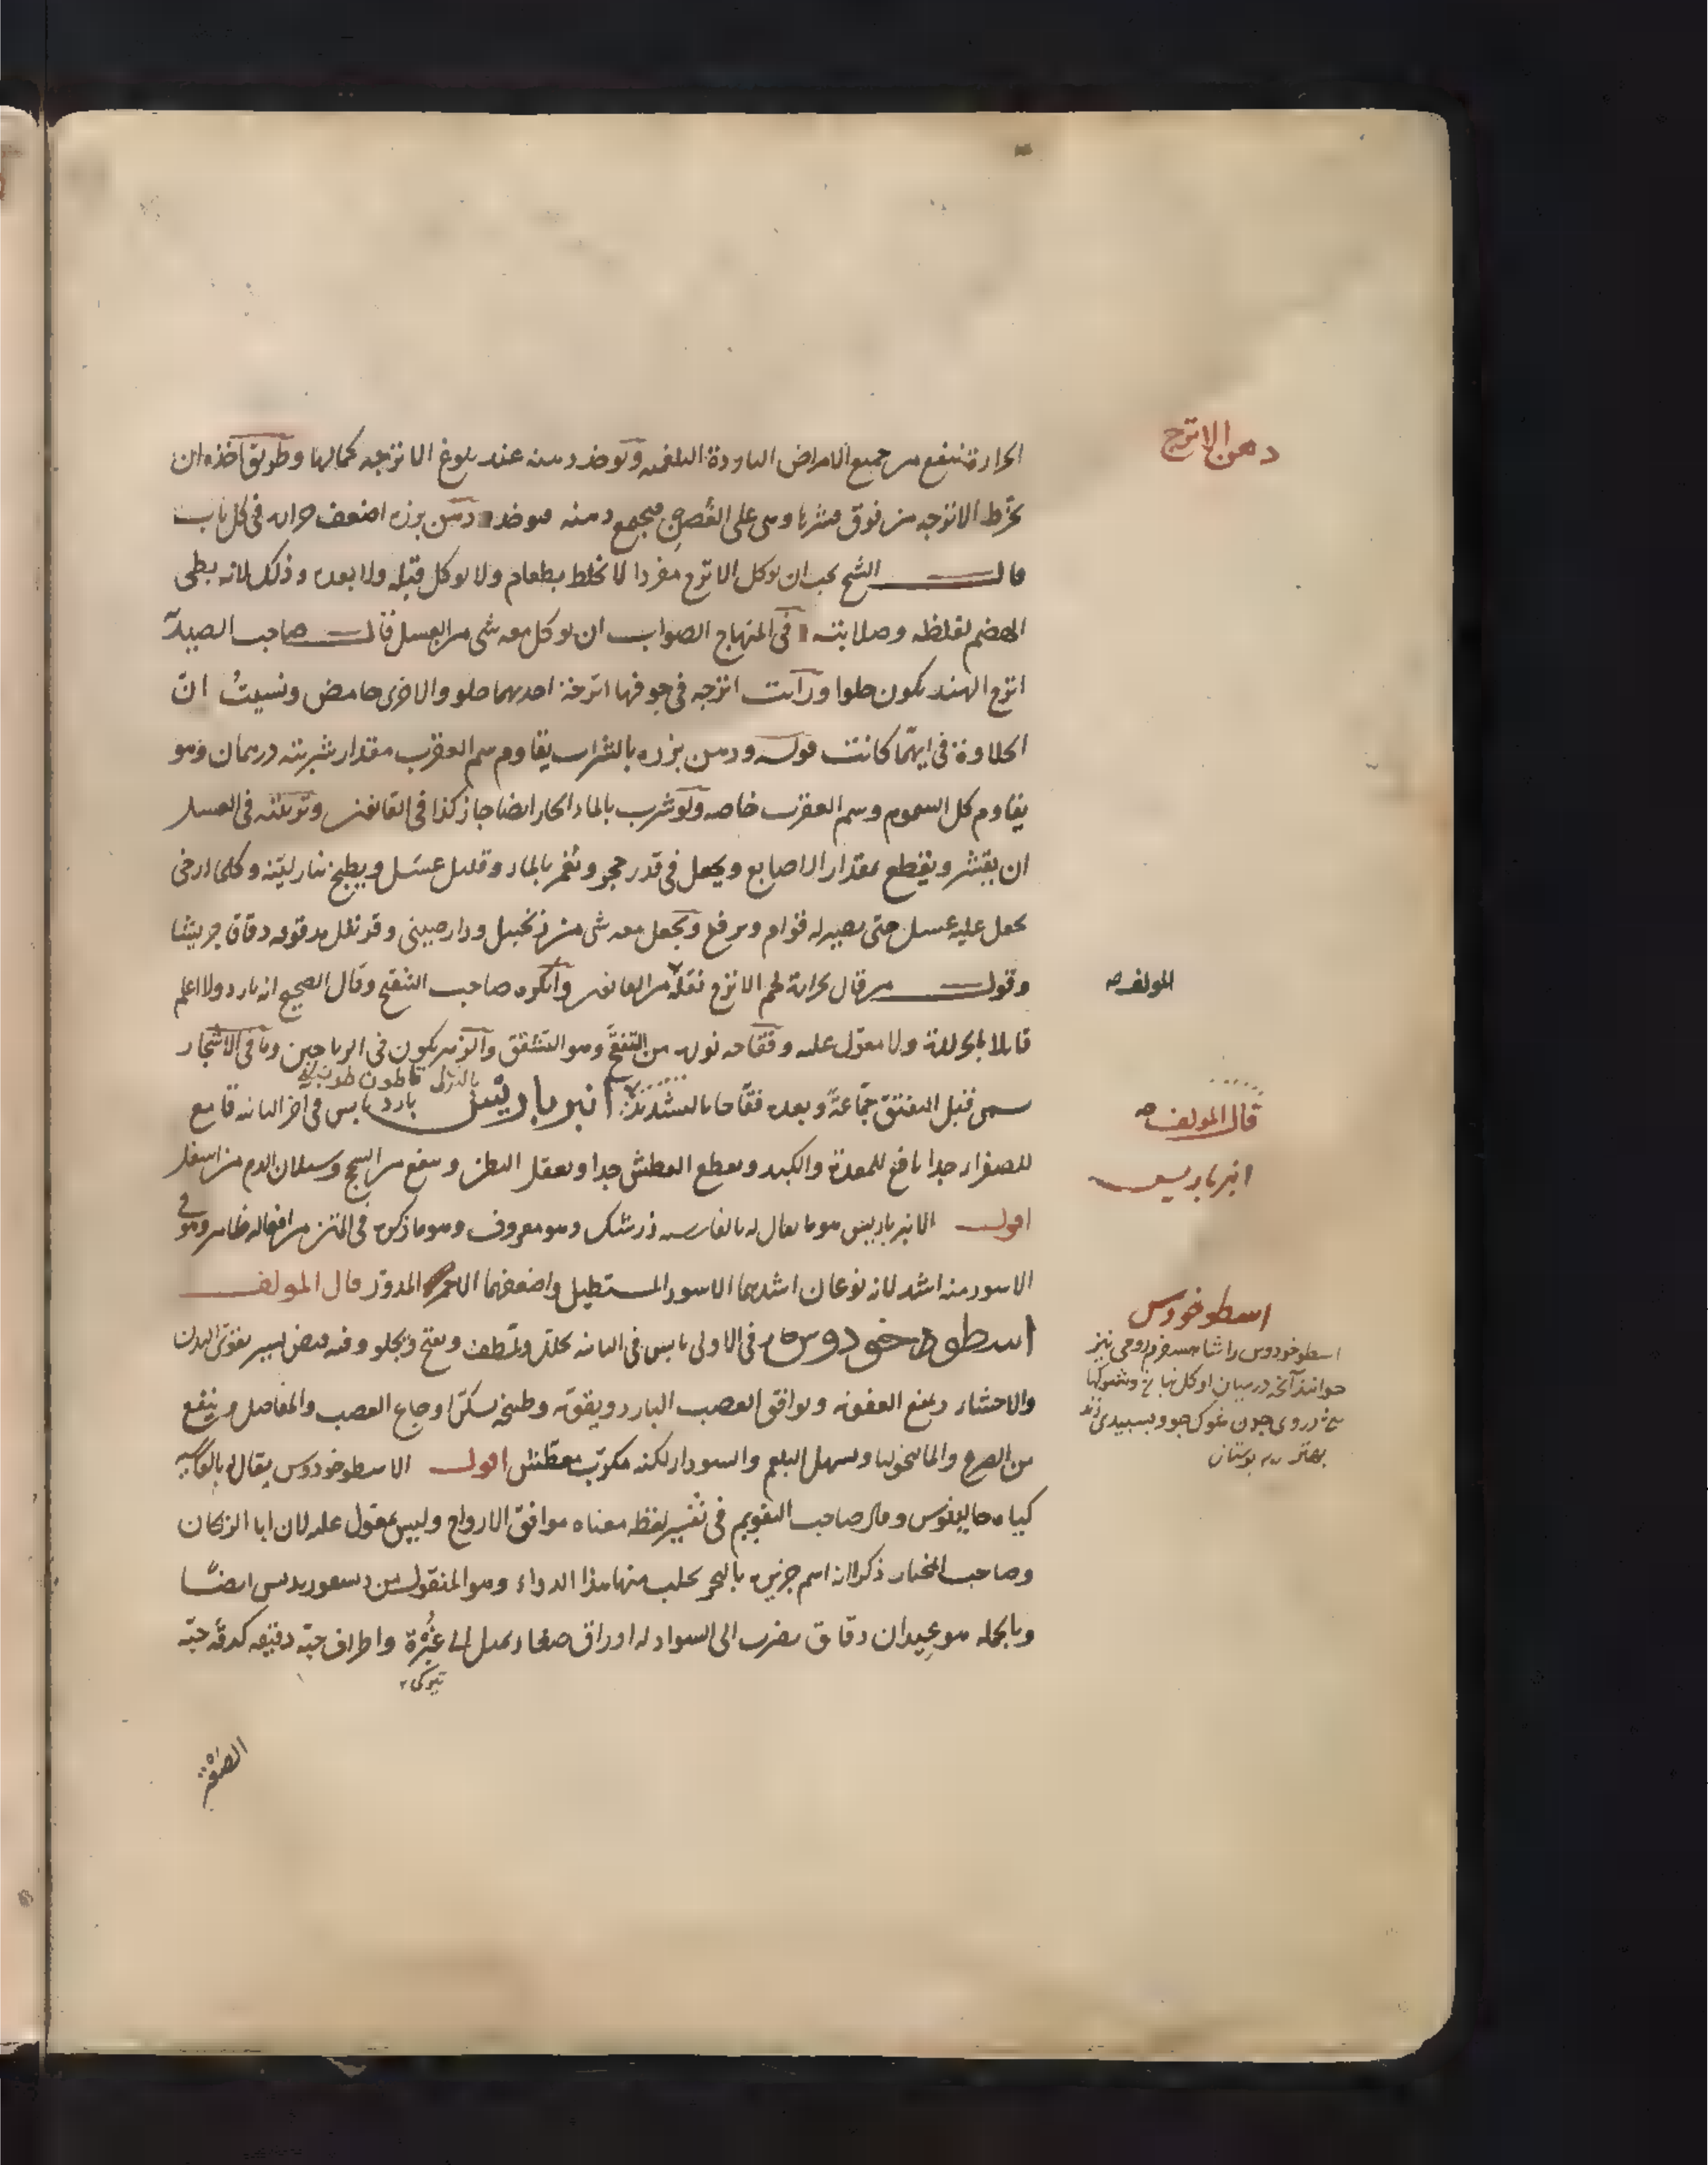 دهن الاترج
الحرارة ينفع من جميع الامراض الباردة البلغميه ويوخذ دهنه عند بلوغ الاترجه كمالها وطريق اخذه ان
تخرط الاترجه من فوق قشرها وهي على القصر فيجمع دهنه فيوخذ ودهن بزره اضعف حرارة في كل باب
قال الشيخ يجب ان يوكل الاترج مفردا لا يخلط بطعام ولا يوكل قبله ولا بعده وذلك لانه بطي
الهضم لغلظه وصلابته في المنهاج الصواب ان يوكل معه شي من العسل قال صاحب الصيدنة
اترج الهند يكون حلوا ورايت اترجه في جوفها اترجة احديهما حلو والاخرى حامض ونسيت ان
الحلاوة في ايهما كانت قوله ودهن بزره بالشراب يقاوم سم العقرب مقدار شربته درهمان وهو
يقاوم كل السموم وسم العقرب خاصه ولو شرب بالماء الحار ايضا جاز كذا في القانون وتربيته في العسل
ان يقشر ويقطع بمقدار الاصابع ويجعل في قدر حجر ويغمر بالماء وقليل عسل ويطبخ بنار لينه وكلما ارخى
يجعل عليه عسل حتى يصير له قوام ويرفع ويجعل معه شي من زنجبيل ودارصيني وقرنفل مدقوقه دقاق جريشا
المولف
وقول من قال بحرارة لحم الاترج نقلا من القانون وانكره صاحب التنقيح وقال الصحيح انه بارد ولا اعلم
قايلا بالحرارة ولا معول عليه وفقاحه نوره من التفقح وهو التشقق والزهر يكون في الرياحين وما في الاشجار
قال المولف
يسمى قبل التفتق جماعة وبعده فقاحا بالتشديد انبر باريس بارد يابس في اخر الثانيه قامع
انبرباريس
للصفراء جدا نافع للمعدة والكبد ويقطع العطش جدا ويعقل البطن وينفع من السحج وسيلان الدم من اسفل
اقول الانبرباريس هو ما يقال له بالفارسيه زرشك وهو معروف وهو ما ذكره في المتن من افعاله ظاهر وهو في
الاسود منه اشد لانه نوعان اشدهما الاسود المستطيل واضعفهما الاحمر المدور قال المولف
اسطوخودوس
اسطوخودوس حار في الاولى يابس في الثانيه يحلل ويلطف ويفتح ويجلو وفيه قبض يسير يقوي البدن
والاحشاء ويمنع العفونه ويوافق العصب البارد ويقويه وطبيخه يسكن اوجاع العصب والمفاصل وينفع
من الصرع والماليخوليا ويسهل البلغم والسوداء لكنه مكرب معطش اقول الاسطوخودوس يقال له بالفارسيه
كياه جالينوس وقال صاحب التقويم في تفسير لفظه معناه موافق الارواح وليس بمقول عليه لان ابا الريحان
وصاحب المختار ذكرا انه اسم جزيره بالبحر يجلب منها هذا الدواء وهو المنقول من ديسقوريدس ايضا
وبالجمله هو عيدان دقاق يضرب الى السواد له اوراق صغار يميل الى غبرة واطراف حبه دقيقه كدقة حبة
تيركى
الصعتر